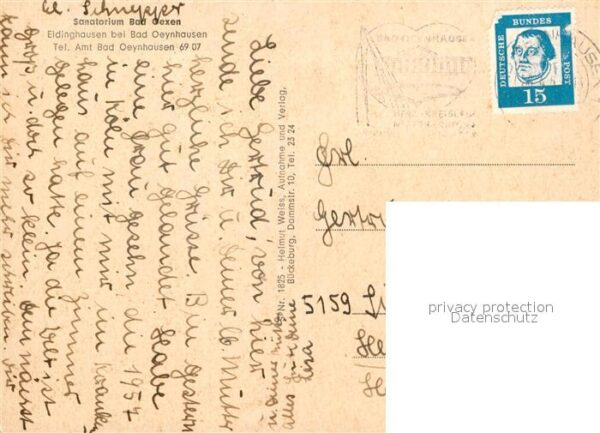 El. Schnepper
Sanatorium Bad Oexen
Eidinghausen bei Bad Oeynhausen
Tel. Amt Bad Oeynhausen 69 07
Liebe Gertrud, von hier
sende ich dir u. deiner lb. Mutter
herzliche Grüsse. Bin gestern
hier gut gelandet. Habe
eine Frau gesehn die 1954
in Köln mit mir im Kranken
haus auf einem Zimmer
gelegen hatte. Ja die Welt ist
so klein. Demnächst
kann ich dir mehr schreiben. Dir
u. deiner Mutter
alles Gute deine
Lisa
Nr. 1825 - Helmut Weiss, Aufnahme und Verlag,
Bückeburg, Dammstr. 10, Tel. 23 24
BAD OEYNHAUSEN
DEUTSCHE BUNDESPOST
15
Frl
Gertr
5159
privacy protection
Datenschutz